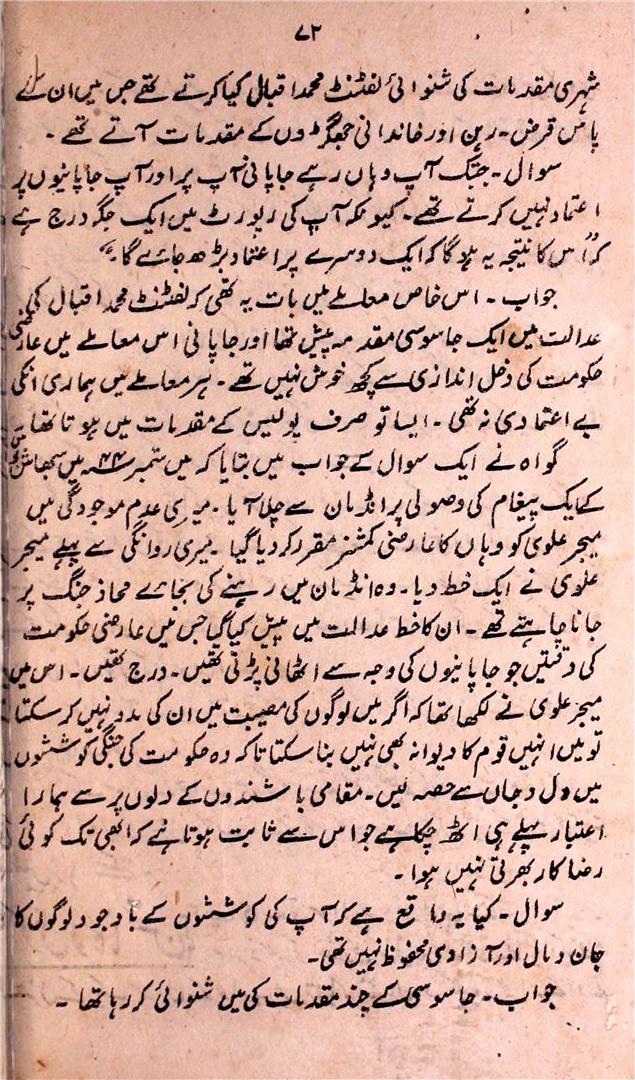 ۷۲
شہری مقدمات کی شنوائی لفٹنٹ محمد اقبال کیا کرتے تھے جس میں ان کے
پاس قرض۔ رہن اور خاندانی جھگڑوں کے مقدمات آتے تھے۔
سوال۔ جبتک آپ وہاں رہے جاپانی آپ پر اور آپ جاپانیوں پر
اعتماد نہیں کرتے تھے۔ کیونکہ آپ کی رپورٹ میں ایک جگہ درج ہے
کہ "اس کا نتیجہ یہ ہوگا کہ ایک دوسرے پر اعتماد بڑھ جائے گا۔"
جواب۔ اس خاص معاملے میں بات یہ تھی کہ لفٹنٹ محمد اقبال کی
عدالت میں ایک جاسوسی مقدمہ پیش تھا اور جاپانی اس معاملے میں عارضی
حکومت کی دخل اندازی سے کچھ خوش نہیں تھے۔ ہر معاملے میں ہماری انکی
بے اعتمادی نہ تھی۔ ایسا تو صرف پولیس کے مقدمات میں ہوتا تھا۔
گواہ نے ایک سوال کے جواب میں بتایا کہ میں ستمبر ۴۴ء میں سبھاش
کے ایک پیغام کی وصولی پر انڈمان سے چلا آیا۔ میری عدم موجودگی میں
میجر علوی کو وہاں کا عارضی کمشنر مقرر کر دیا گیا۔ میری روانگی سے پہلے میجر
علوی نے ایک خط دیا۔ وہ انڈمان میں رہنے کی بجائے محاذ جنگ پر
جانا چاہتے تھے۔ ان کا خط عدالت میں پیش کیا گیا جس میں عارضی حکومت
کی دقتیں جو جاپانیوں کی وجہ سے اٹھانی پڑتی تھیں۔ درج تھیں۔ اس میں
میجر علوی نے لکھا تھا کہ اگر میں لوگوں کی مصیبت میں ان کی مدد نہیں کر سکتا
تو میں انہیں قوم کا دیوانہ بھی نہیں بنا سکتا تاکہ وہ حکومت کی جنگی کوششوں
میں دل و جاں سے حصہ لیں۔ مقامی باشندوں کے دلوں پر سے ہمارا
اعتبار پہلے ہی اٹھ چکا ہے جو اس سے ثابت ہوتا ہے کہ ابھی تک کوئی
رضاکار بھرتی نہیں ہوا۔
سوال۔ کیا یہ واقع ہے کہ آپ کی کوششوں کے باوجود لوگوں کا
جان و مال اور آزادی محفوظ نہیں تھی۔
جواب۔ جاسوسی کے چند مقدمات کی میں شنوائی کر رہا تھا۔